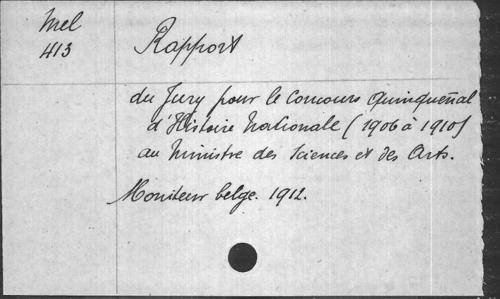 Mel
413
Rapport
du Jury pour le Concours Quinqueñal
d'Histoire Nationale (1906 à 1910)
au Ministre des Sciences et des Arts.
Moniteur belge. 1912.